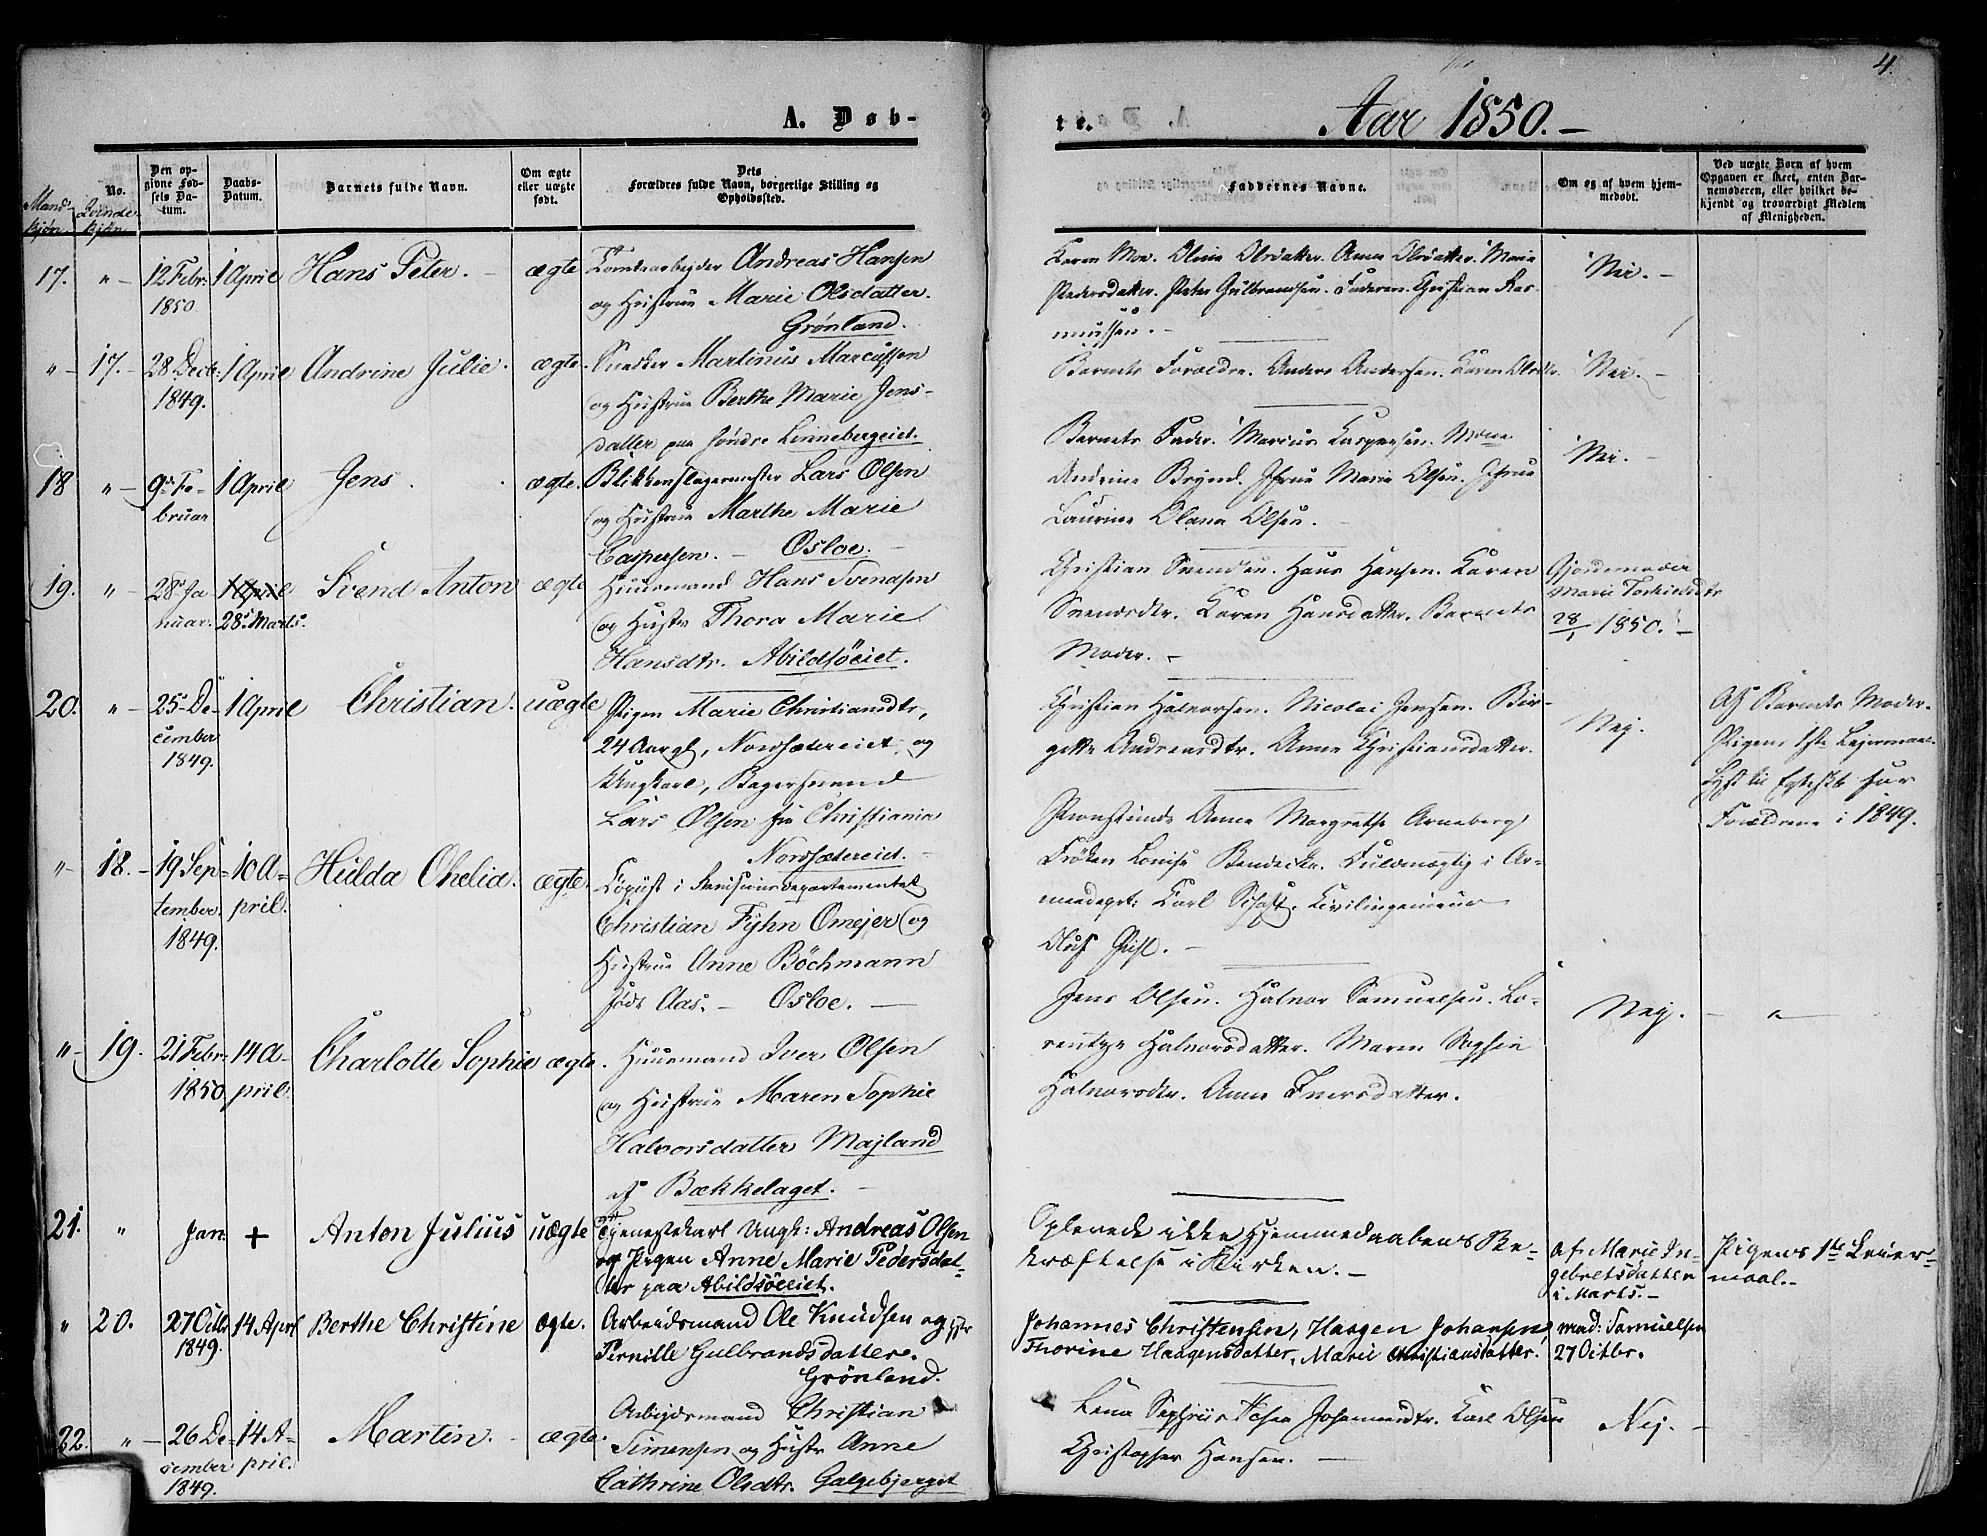 4.
A. Døb-
te.
Aar 1850.-
Mand-
kjøn.
Qvinde-
kjøn.
No.
Den op-
givne Fød-
sels Da-
tum.
Daabs-
Datum.
Barnets fulde Navn.
Om ægte
eller uægte
født.
Dets
Forældres fulde Navn, borgerlige Stilling og
Opholdssted.
Faddernes Navne.
Om og af hvem hjem-
medøbt.
Ved uægte Børn af hvem
Opgaven er skeet, enten Bar-
nemoderen, eller hvilket be-
kjendt og troværdigt Medlem
af Menigheden.
17. " 12 Febr: 1 April Hans Peter. ægte Andreas Hansen
1850
og Hustrue Marie Olsdatter.
Grønland.
Karen Moe. Oline Olsdatter. Anne Olsdatter. Marie
Pedersdatter. Peter Gulbrandsen. Faderen. Christian Ras-
mussen.-
Nei.-
" 17. 28 Decb: 1 April Andrine Julie. ægte. Snedker Martinus Marcussen
1849.
og Hustrue Berthe Marie Jens-
datter paa søndre Linnebergeiet.
Barnets Forældre. Anders Andersen. Karen Olsdtr.
Nei.-
18 " 9de Fe- 1 April Jens. ægte. Blikkenslagermester Lars Olsen
bruar
og Hustrue Marthe Marie
Caspersen.- Osloe.-
Barnets Fader. Marius Caspersen. Mane
Andrine Brynd. Jfrue Marie Olsen. Jfrue
Laurine Olana Olsen.
Nei.-
19. " 28de Ja- 1 April Svend Anton ægte Huusmand Hans Svendsen
nuar. 28de Marts.
og Hustr Thora Marie
Hansdtr. Abildsøeiet.
Christian Svendsen. Hans Hansen. Karen
Svendsdtr. Karen Hansdatter. Barnets
Moder.-
Gjordemoder
Marie Torkieldsdtr
28/1 1850.-
20. " 25de De- 1 April Christian. uægte Pigen Marie Christiansdtr,
cember
1849.
24 Aar gl, Nordsætereiet, og
Ungkarl, Bagersvend
Lars Olsen fra Christiania
Nordsætereiet.-
Christian Halvorsen. Nicolai Jensen. Bir-
gitte Andreasdtr. Anne Christiansdatter.
Nej.
Af Barnets Moder.
Pigens 1ste Leiermaal.
Lyst til Egtesk. for
Forældrene i 1849.
" 18. 19 Sep- 10 A- Hulda Ohelia. ægte. Copiist i Revisionsdepartementet
tember. pril.
1849.
Christian Fyhn Omejer og
Hustrue Anne Böchmann
født Aas.- Osloe.-
Provstinde Anne Margrethe Arneberg
Frøken Louise Bendeche. Fuldmægtig i Ar-
meedept: Carl Civilingenieur
Oluf
" 19. 21 Febr- 14 A- Charlotte Sophie ægte. Huusmand Iver Olsen
1850. pril.
og Hustrue Maren Sophie
Halvorsdatter Majland
af Bækkelaget.-
Jens Olsen. Halvor Samuelsen. Lo-
rentze Halvorsdatter. Maren Sophie
Halvorsdtr. Anne Iversdatter.
Nej. - " -
21. " Jan. + Anton Julius uægte Tjenestekarl Ungk: Andreas Olsen
og Pigen Anne Marie Pedersdat-
ter paa Abildsøeiet.
Oplevede ikke Hjemmedaabens Be-
kræftelse i Kirken.-
af Marie In-
gebretsdatter
i Marts.-
Pigens 1ste Leier-
maal.-
" 20. 27 Octbr 14 Aprl Berthe Christine ægte. Arbeidsmand Ole Knudsen og Hstr
1849.
Pernille Gulbrandsdatter.
Grønland.
Johannes Christensen, Haagen Johansen
Thorine Haagensdatter, Marie Christiansdatter.
mad: Samuelsen
27 Octbr.
22. " 26 De- 14 A- Martin. ægte. Arbejdsmand Christian
cember pril.
1849.
Simensen og Hustr Anne
Cathrine Olsdtr. Galgebjerget
Lena Josea Johannesdtr. Carl Olsen
Christopher Hansen.-
Nej.-